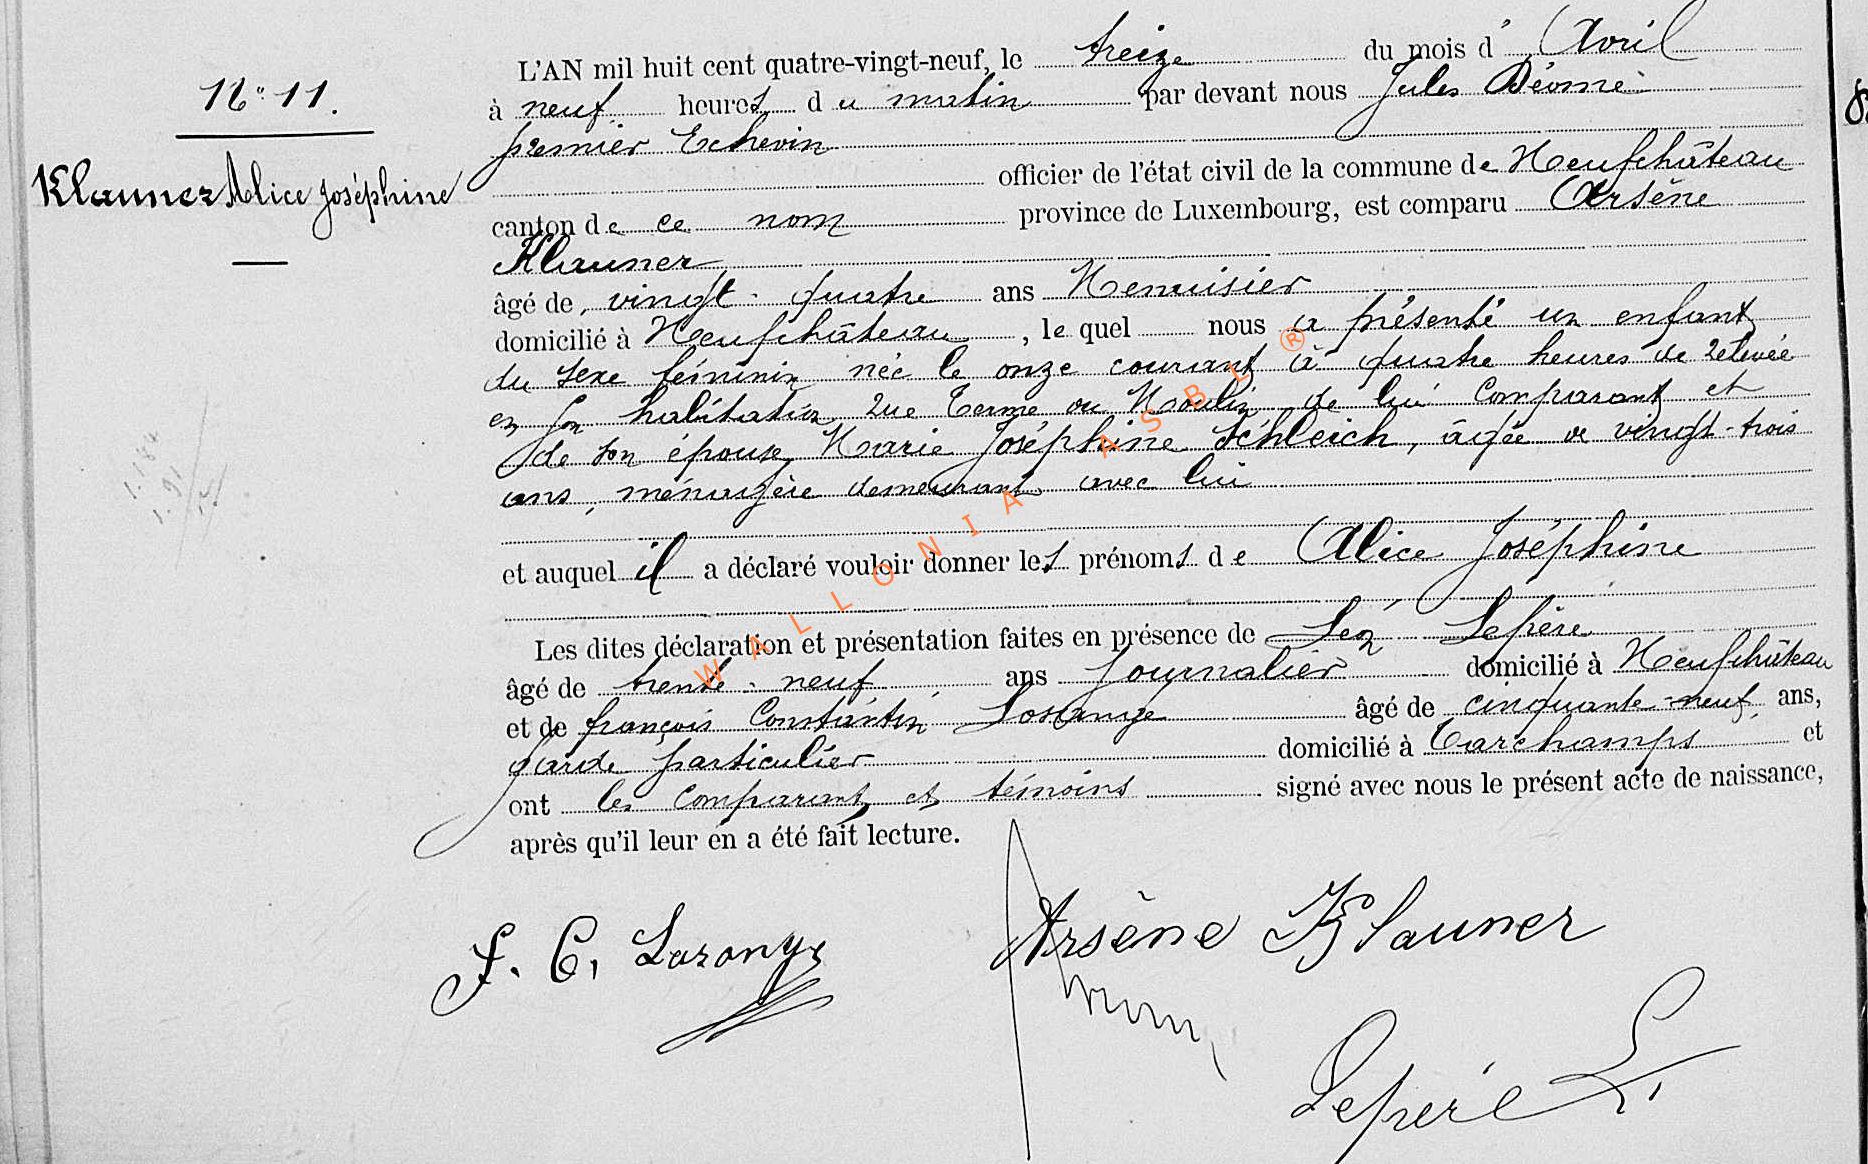 L'AN mil huit cent quatre-vingt-neuf, le treize du mois d' Avril
N° 11.
à neuf heures du matin par devant nous Jules Déome
premier Echevin
officier de l'état civil de la commune de Neufchâteau
Klauner Alice Joséphine
canton de ce nom province de Luxembourg, est comparu Arsène
Klauner
âgé de vingt-quatre ans Menuisier
domicilié à Neufchâteau, le quel nous a présenté un enfant
du sexe féminin née le onze courant à quatre heures de relevée
en son habitation rue Terme ou Moulin de lui Comparant et
de son épouse Marie Joséphine Schleich, âgée de vingt-trois
ans, ménagère demeurant avec lui
et auquel il a déclaré vouloir donner les prénoms de Alice Joséphine
Les dites déclaration et présentation faites en présence de Léon Lepère
âgé de trente-neuf ans Journalier domicilié à Neufchâteau
et de françois Constantin Losange âgé de cinquante-neuf ans,
garde particulier domicilié à Tarchamps et
ont les comparant et témoins signé avec nous le présent acte de naissance,
après qu'il leur en a été fait lecture.
F. C. Lozange
Arsène Klauner
Lepère L.
WALLONIA ASBL ®